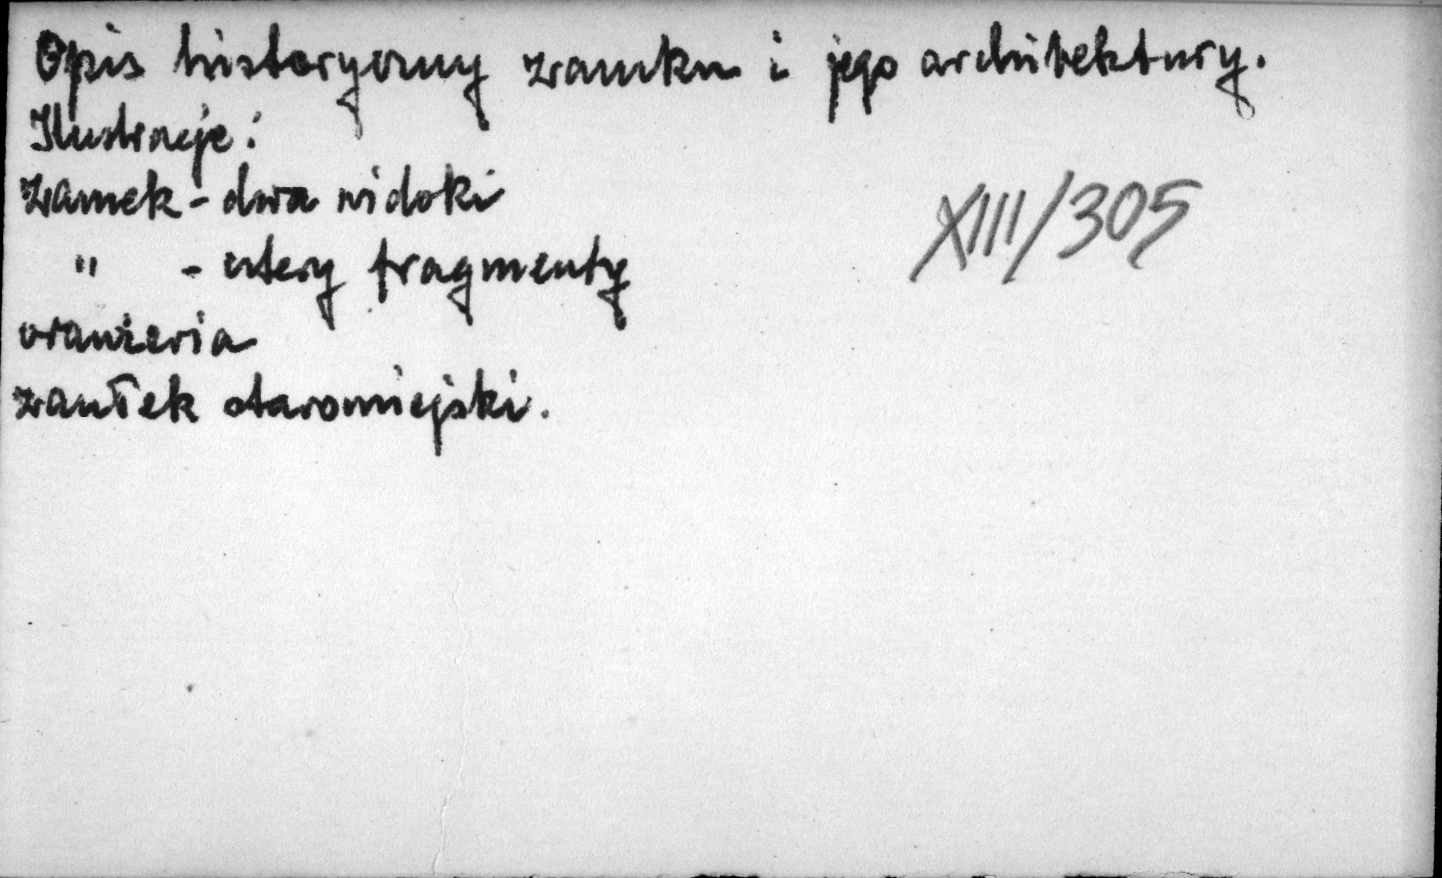 Opis historyczny zamku i jego architektury.
Ilustracje:
zamek - dwa widoki
" - cztery fragmenty
oranżeria
zaułek staromiejski.
XIII/305